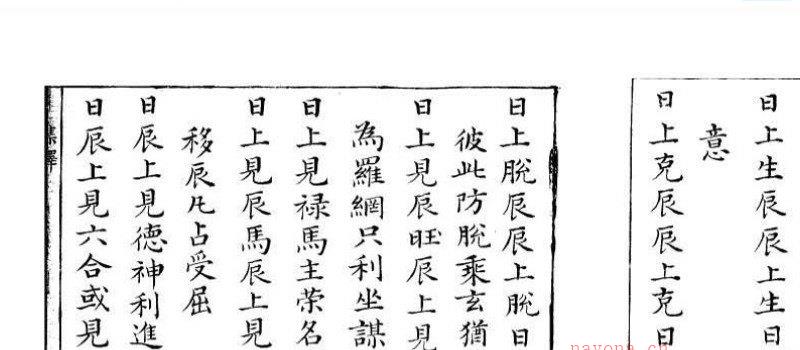 日上生辰辰上生日
意
日上克辰辰上克日
日上脫辰辰上脫日
彼此防脫乘玄猶
日上見辰旺辰上見
為羅網只利坐謀
日上見祿馬主荣名
日上見辰馬辰上見
移辰凡占受屈
日辰上見德神利進
日辰上見六合或見
nayona.cn